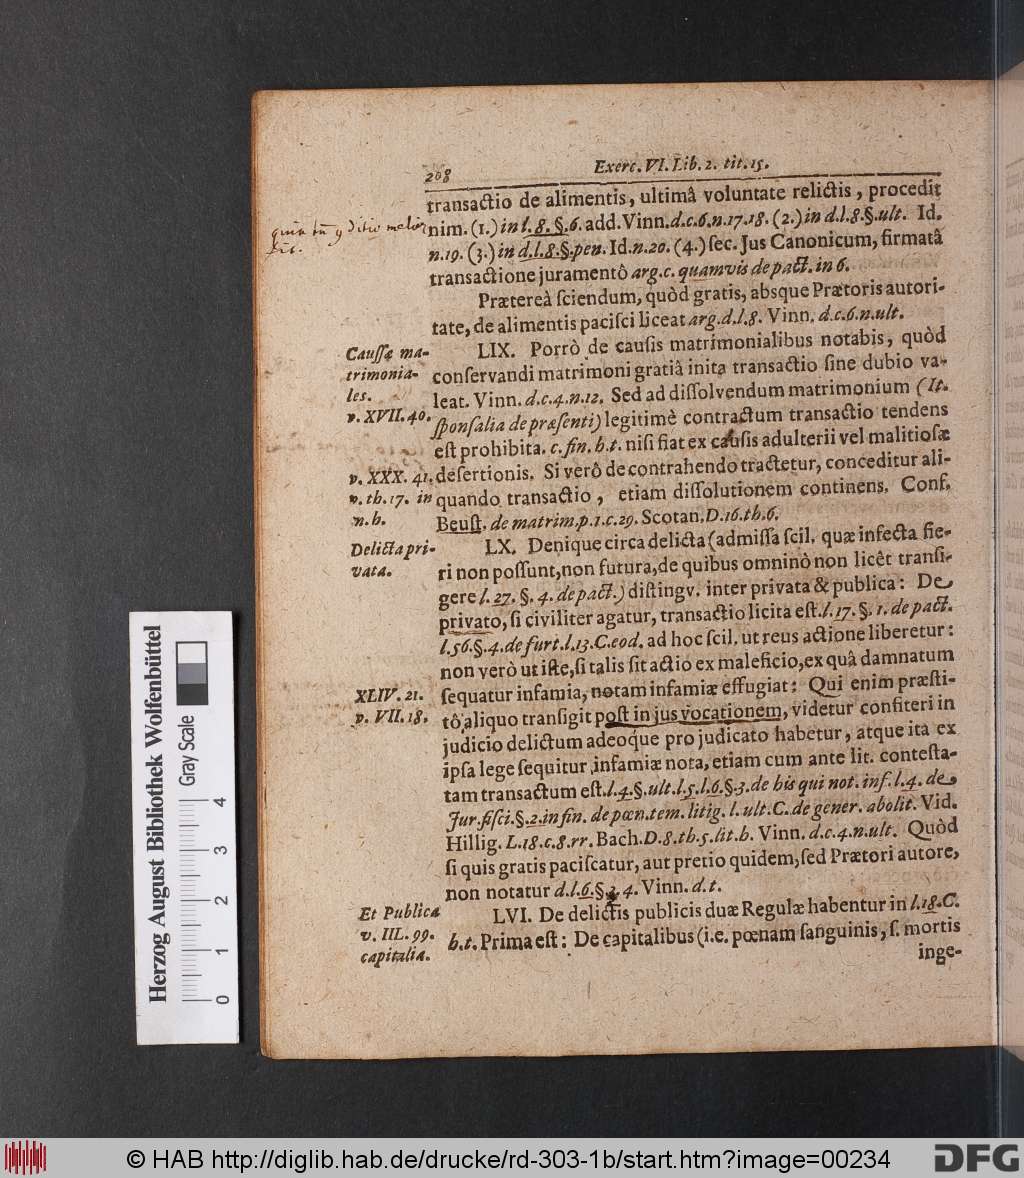 208
Exerc. VI. Lib. 2. tit. 15.
transactio de alimentis, ultimâ voluntate relictis, procedit
nim. (1.) in l. 8. §. 6. add. Vinn. d. c. 6. n. 17. 18. (2.) in d. l. 8. §. ult. Id.
n. 19. (3.) in d. l. 8. §. pen. Id. n. 20. (4.) sec. Jus Canonicum, firmatâ
transactione juramentô arg. c. quamvis de pact. in 6.
Prætereà sciendum, quòd gratis, absque Prætoris autori-
tate, de alimentis pacisci liceat arg. d. l. 8. Vinn. d. c. 6. n. ult.
Caussæ ma-
trimonia-
les.
v. XVII. 40.
LIX. Porrò de causis matrimonialibus notabis, quòd
conservandi matrimoni gratiâ inita transactio sine dubio va-
leat. Vinn. d. c. 4. n. 12. Sed ad dissolvendum matrimonium (It.
sponsalia de præsenti) legitimè contractum transactio tendens
est prohibita. c. fin. h. t. nisi fiat ex causis adulterii vel malitiosæ
v. XXX. 41.
v. th. 17. in
n. h.
desertionis. Si verô de contrahendo tractetur, conceditur ali-
quando transactio, etiam dissolutionem continens. Conf.
Beust. de matrim. p. 1. c. 29. Scotan. D. 16. th. 6.
Delicta pri-
vata.
LX. Denique circa delicta (admissa scil. quæ infecta fie-
ri non possunt, non futura, de quibus omninò non licêt transi-
gere l. 27. §. 4. de pact.) distingv. inter privata & publica: De
privato, si civiliter agatur, transactio licita est. l. 17. §. 1. de pact.
l. 56. §. 4. de furt. l. 13. C. eod. ad hoc scil. ut reus actione liberetur:
non verò ut iste, si talis sit actio ex maleficio, ex quâ damnatum
XLIV. 21.
v. VII. 18.
sequatur infamia, notam infamiæ effugiat: Qui enim præsti-
tô aliquo transigit post in jus vocationem, videtur confiteri in
judicio delictum adeoq́ue pro judicato habetur, atque ita ex
ipsa lege sequitur infamiæ nota, etiam cum ante lit. contesta-
tam transactum est. l. 4. §. ult. l. 5. l. 6. §. 3. de his qui not. inf. l. 4. de
Jur. fisci. §. 2. in fin. de pœn. tem. litig. l. ult. C. de gener. abolit. Vid.
Hillig. L. 18. c. 8. rr. Bach. D. 8. th. 5. lit. b. Vinn. d. c. 4. n. ult. Quòd
si quis gratis paciscatur, aut pretio quidem, sed Prætori autore,
non notatur d. l. 6. § 3. 4. Vinn. d. t.
Et Publica
v. IIL. 99.
capitalia.
LVI. De delictis publicis duæ Regulæ habentur in l. 18. C.
h. t. Prima est: De capitalibus (i.e. pœnam sanguinis, s. mortis
inge-
Herzog August Bibliothek Wolfenbüttel
Gray Scale
0 1 2 3 4
© HAB http://diglib.hab.de/drucke/rd-303-1b/start.htm?image=00234
DFG